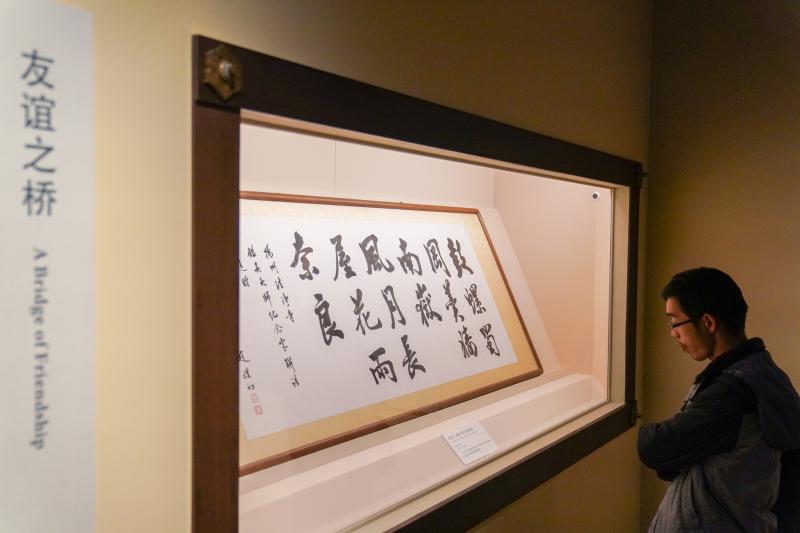 友谊之桥
A Bridge of Friendship
鼓螺蜀
岡羹牆
南嶽
風月長
屋花雨
奈良
揚州法淨寺
鑑真大師紀念堂聯語
趙樸初